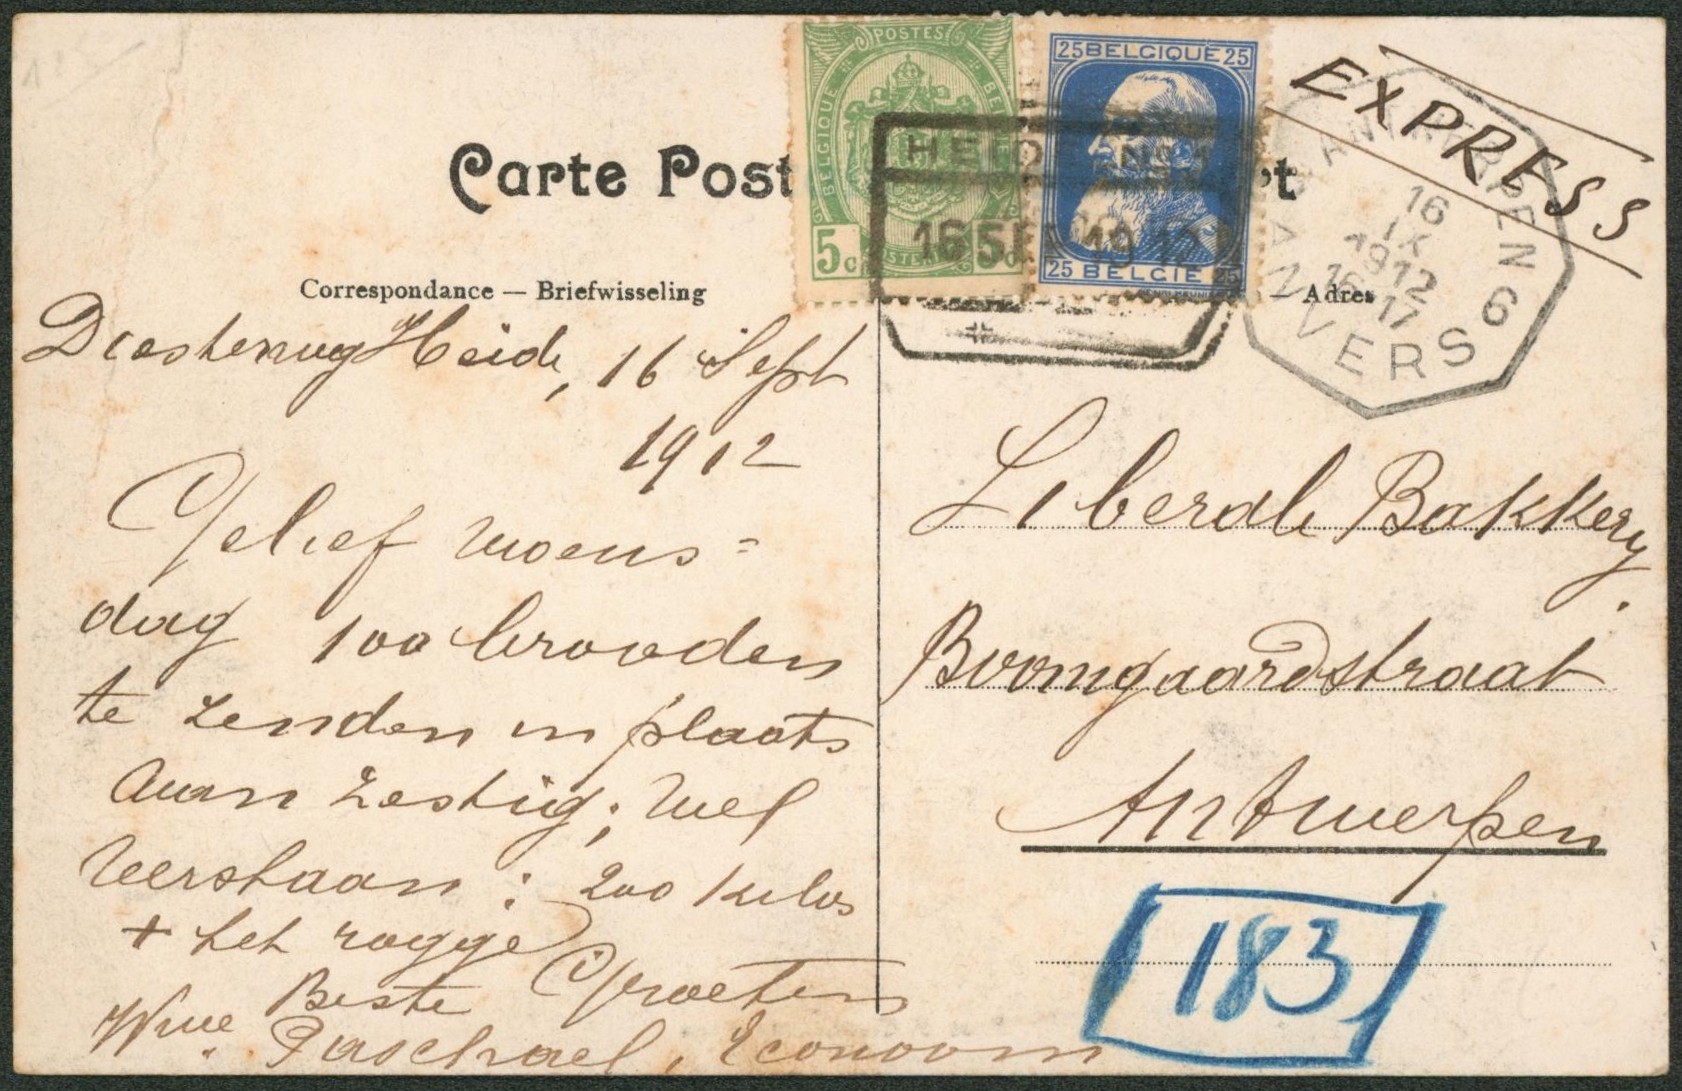 POSTES
BELGIQUE
5c
25 BELGIQUE 25
25 BELGIË 25
EXPRESS
Carte Post
't
HEID
16 SE 1912
ANTWERPEN 6
16
IX
1912
16-17
ANVERS
Correspondance — Briefwisseling
Adres
Heide, 16 Sept
1912
Gelief woens=
dag 100 brooden
te zenden in plaats
van zestig; wel
verstaan: 200 kilos
+ het rogge
Beste Groeten
Wwe Paschael, Econoom
Liberale Bakkery.
Boomgaardstraat
Antwerpen
183